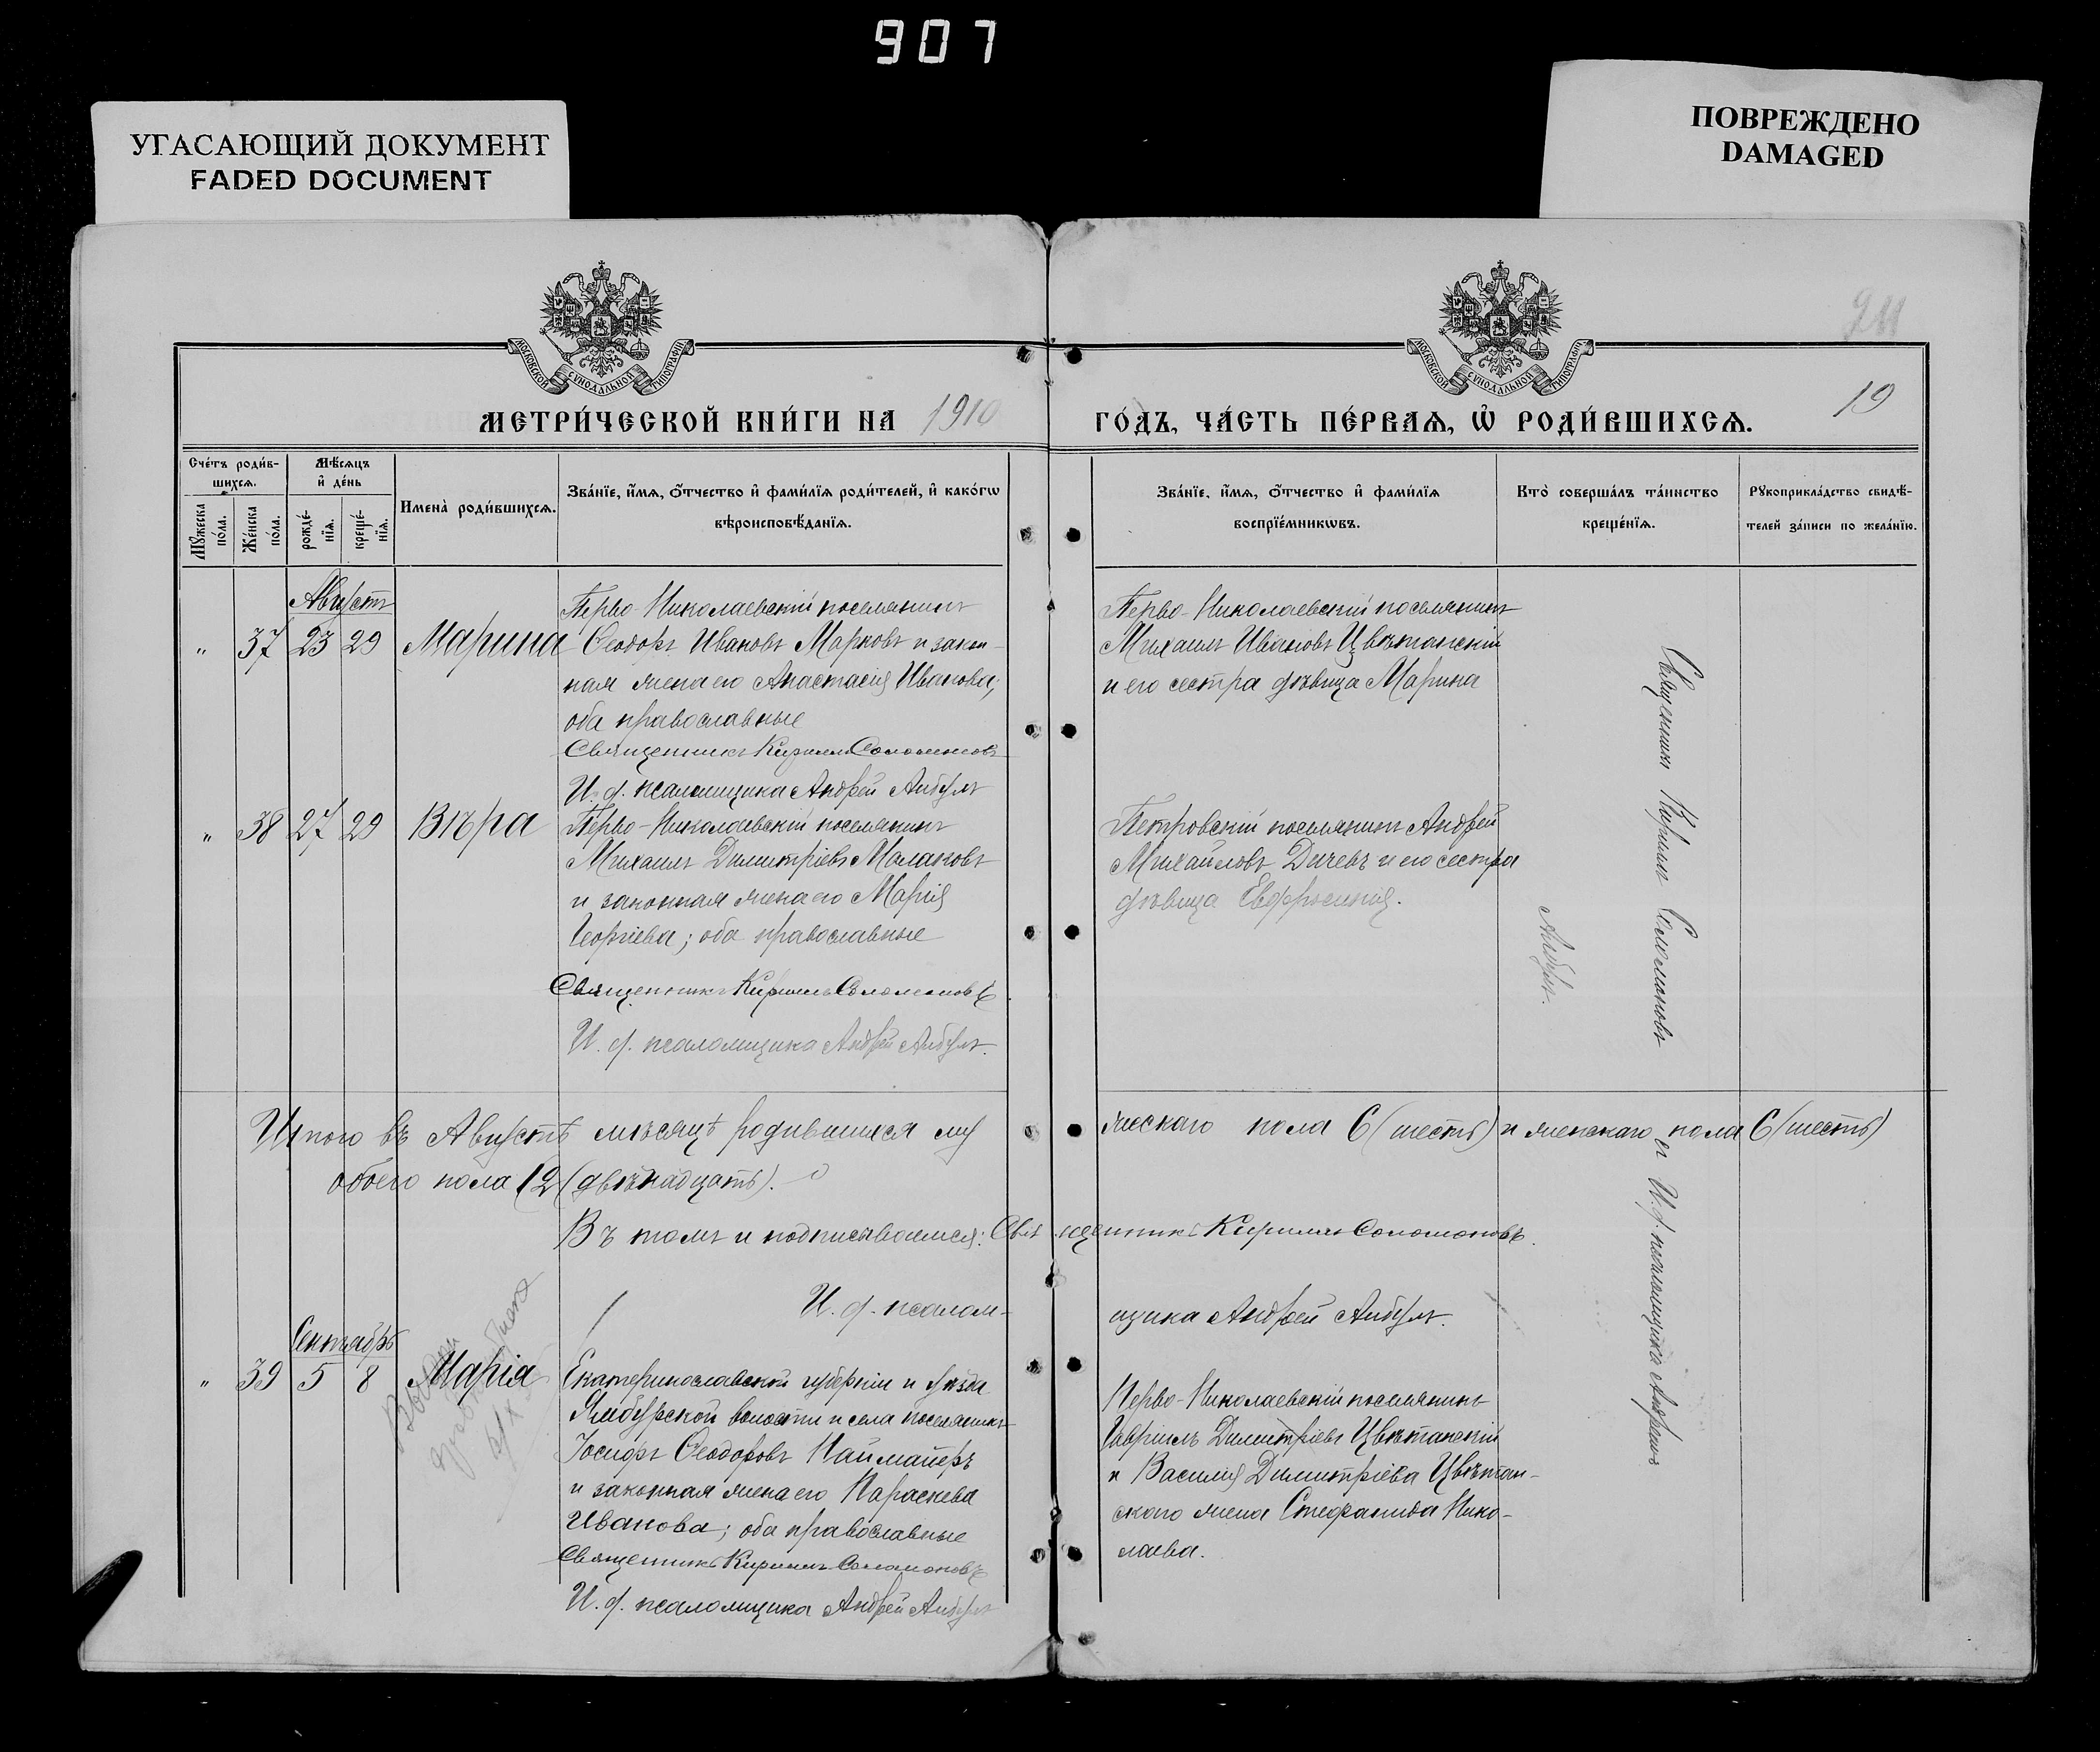 907
УГАСАЮЩИЙ ДОКУМЕНТ
FADED DOCUMENT
ПОВРЕЖДЕНО
DAMAGED
МОСКОВСКОЙ СУНОДАЛЬНОЙ ТИПОГРАФІИ
МОСКОВСКОЙ СУНОДАЛЬНОЙ ТИПОГРАФІИ
211
19
МЕТРИ́ЧЕСКОЙ КНИ́ГИ НА 1910
ГО́ДЪ, ЧА́СТЬ ПЕ́РВАѦ, Ѡ҆ РОДИ́ВШИХСѦ.
Сче́тъ роди́в-
шихсѧ.
Мѣ́сѧцъ
и҆ де́нь
Мꙋ́жеска по́ла.
Же́нска по́ла.
рожде́-
нїѧ.
креще́-
нїѧ.
Имена̀ роди́вшихсѧ.
Зва́нїе, и҆́мѧ, ѻ҆́тчество и҆ фами́лїѧ роди́телей, и҆ како́гѡ
вѣроисповѣ́данїѧ.
Зва́нїе, и҆́мѧ, ѻ҆́тчество и҆ фами́лїѧ
воспрїе́мникѡвъ.
Кто̀ соверша́лъ та́инство
креще́нїѧ.
Рꙋкоприкла́дство свидѣ́-
телей за́писи по жела́нїю.
Августъ
" 37 23 29 Марина
Перво-Николаевскій поселянинъ
Ѳеодоръ Ивановъ Марковъ и закон-
ная жена его Анастасія Иванова;
оба православные
Священникъ Кириллъ Соломоновъ
И. д. псаломщика Андрей Анбулъ
Перво-Николаевскій поселянинъ
Михаилъ Ивановъ Цвѣтанскій
и его сестра дѣвица Марина
" 38 27 29 Вѣра
Перво-Николаевскій поселянинъ
Михаилъ Димитріевъ Малаковъ
и законная жена его Марія
Георгіева; оба православные
Священникъ Кириллъ Соломоновъ
И. д. псаломщика Андрей Анбулъ.
Петровскій поселянинъ Андрей
Михайловъ Дичевъ и его сестра
дѣвица Евфросинія.
Священникъ Кириллъ Соломоновъ
и И. д. псаломщика Андрей
Анбулъ.
Итого въ Августѣ мѣсяцѣ родившихся му
жескаго пола 6 (шесть) и женскаго пола 6 (шесть)
обоего пола 12 (двѣнадцать).
Въ томъ и подписываемся: Свя
щенникъ Кириллъ Соломоновъ.
И. д. псалом-
щика Андрей Анбулъ.
Сентябрь
" 39 5 8 Марія
Екатеринославской губерніи и уѣзда
Ямбурской волости и села поселянинъ
Іосифъ Ѳеодоровъ Наймайеръ
и законная жена его Параскева
Иванова; оба православные
Священникъ Кириллъ Соломоновъ
И. д. псаломщика Андрей Анбулъ
Перво-Николаевскій поселянинъ
Гавріилъ Димитріевъ Цвѣтанскій
и Василія Димитріева Цвѣтан-
скаго жена Стефанида Нико-
лаева.